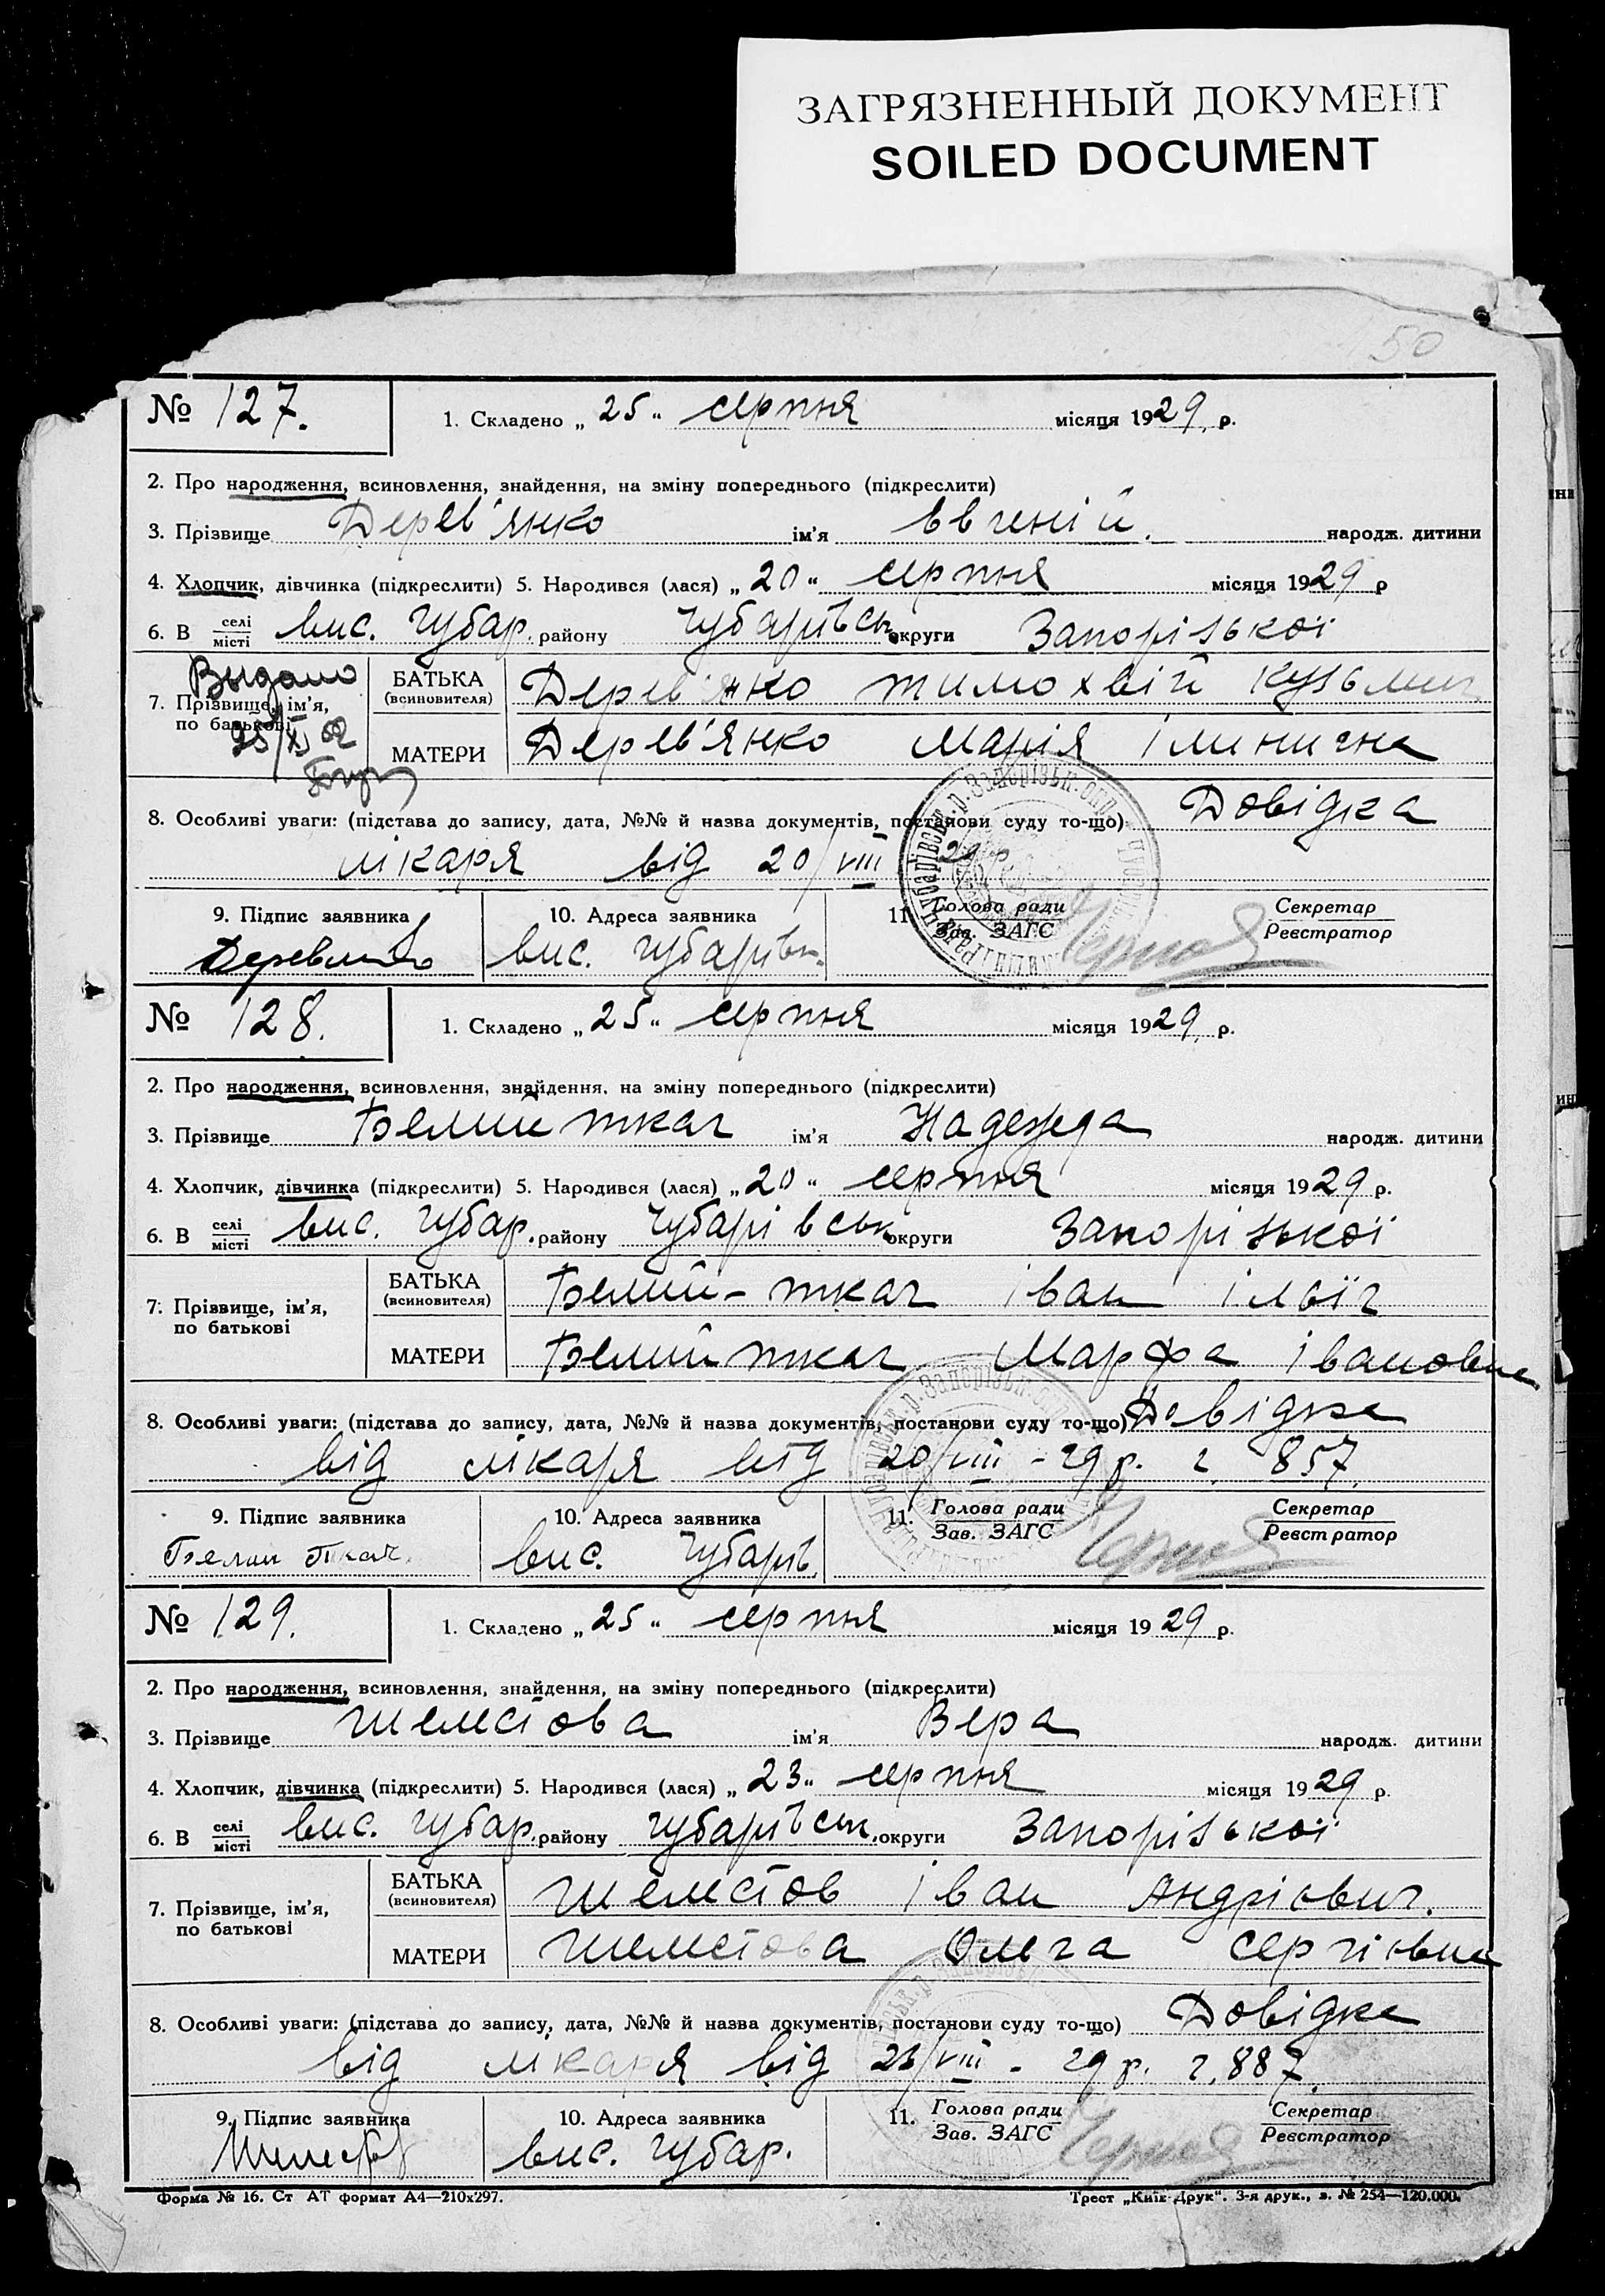 ЗАГРЯЗНЕННЫЙ ДОКУМЕНТ
SOILED DOCUMENT
50
№ 127. 1. Складено „ 25 " серпня місяця 1929 р.
2. Про народження, всиновлення, знайдення, на зміну попереднього (підкреслити)
3. Прізвище Дерев'янко ім'я Євгеній. народж. дитини
4. Хлопчик, дівчинка (підкреслити) 5. Народився (лася) „ 20 " серпня місяця 1929 р
6. В селі місті вис. Чубар. району Чубарівськ округи Запорізької
Выдано
7. Прізвище, ім'я, по батькові БАТЬКА (всиновителя) Дерев'янко Тимохвій Кузьмич
МАТЕРИ Дерев'янко Марія Ілинична
8. Особливі уваги: (підстава до запису, дата, №№ й назва документів, постанови суду то-що) Довідка
лікаря від 20/VIII 29 р.
9. Підпис заявника 10. Адреса заявника 11. Голова ради Зав. ЗАГС Секретар Реєстратор
вис. Чубарівк.
№ 128. 1. Складено „ 25 " серпня місяця 1929 р.
2. Про народження, всиновлення, знайдення, на зміну попереднього (підкреслити)
3. Прізвище Белий ткач ім'я Надежда народж. дитини
4. Хлопчик, дівчинка (підкреслити) 5. Народився (лася) „ 20 " серпня місяця 1929 р.
6. В селі місті вис. Чубар. району Чубарівськ округи Запорізької
7. Прізвище, ім'я, по батькові БАТЬКА (всиновителя) Белий-ткач Іван Ільїч
МАТЕРИ Белий ткач Марфа Івановна
8. Особливі уваги: (підстава до запису, дата, №№ й назва документів, постанови суду то-що) Довідка
від лікаря від 20/VIII - 29 р. ч. 857.
9. Підпис заявника 10. Адреса заявника 11. Голова ради Зав. ЗАГС Секретар Реєстратор
Белий Ткач. вис. Чубарів
№ 129. 1. Складено „ 25 " серпня місяця 1929 р.
2. Про народження, всиновлення, знайдення, на зміну попереднього (підкреслити)
3. Прізвище Шелестова ім'я Вера народж. дитини
4. Хлопчик, дівчинка (підкреслити) 5. Народився (лася) „ 23 " серпня місяця 1929 р.
6. В селі місті вис. Чубар. району Чубарівськ. округи Запорізької
7. Прізвище, ім'я, по батькові БАТЬКА (всиновителя) Шелестов Іван Андрієвич.
МАТЕРИ Шелестова Ольга Сергієвна
8. Особливі уваги: (підстава до запису, дата, №№ й назва документів, постанови суду то-що) Довідка
від лікаря від 23/VIII - 29 р. ч. 887.
9. Підпис заявника 10. Адреса заявника 11. Голова ради Зав. ЗАГС Секретар Реєстратор
вис. Чубар.
Форма № 16. Ст АТ формат А4—210х297. Трест „Київ-Друк". 3-я друк., з. № 254—120.000.